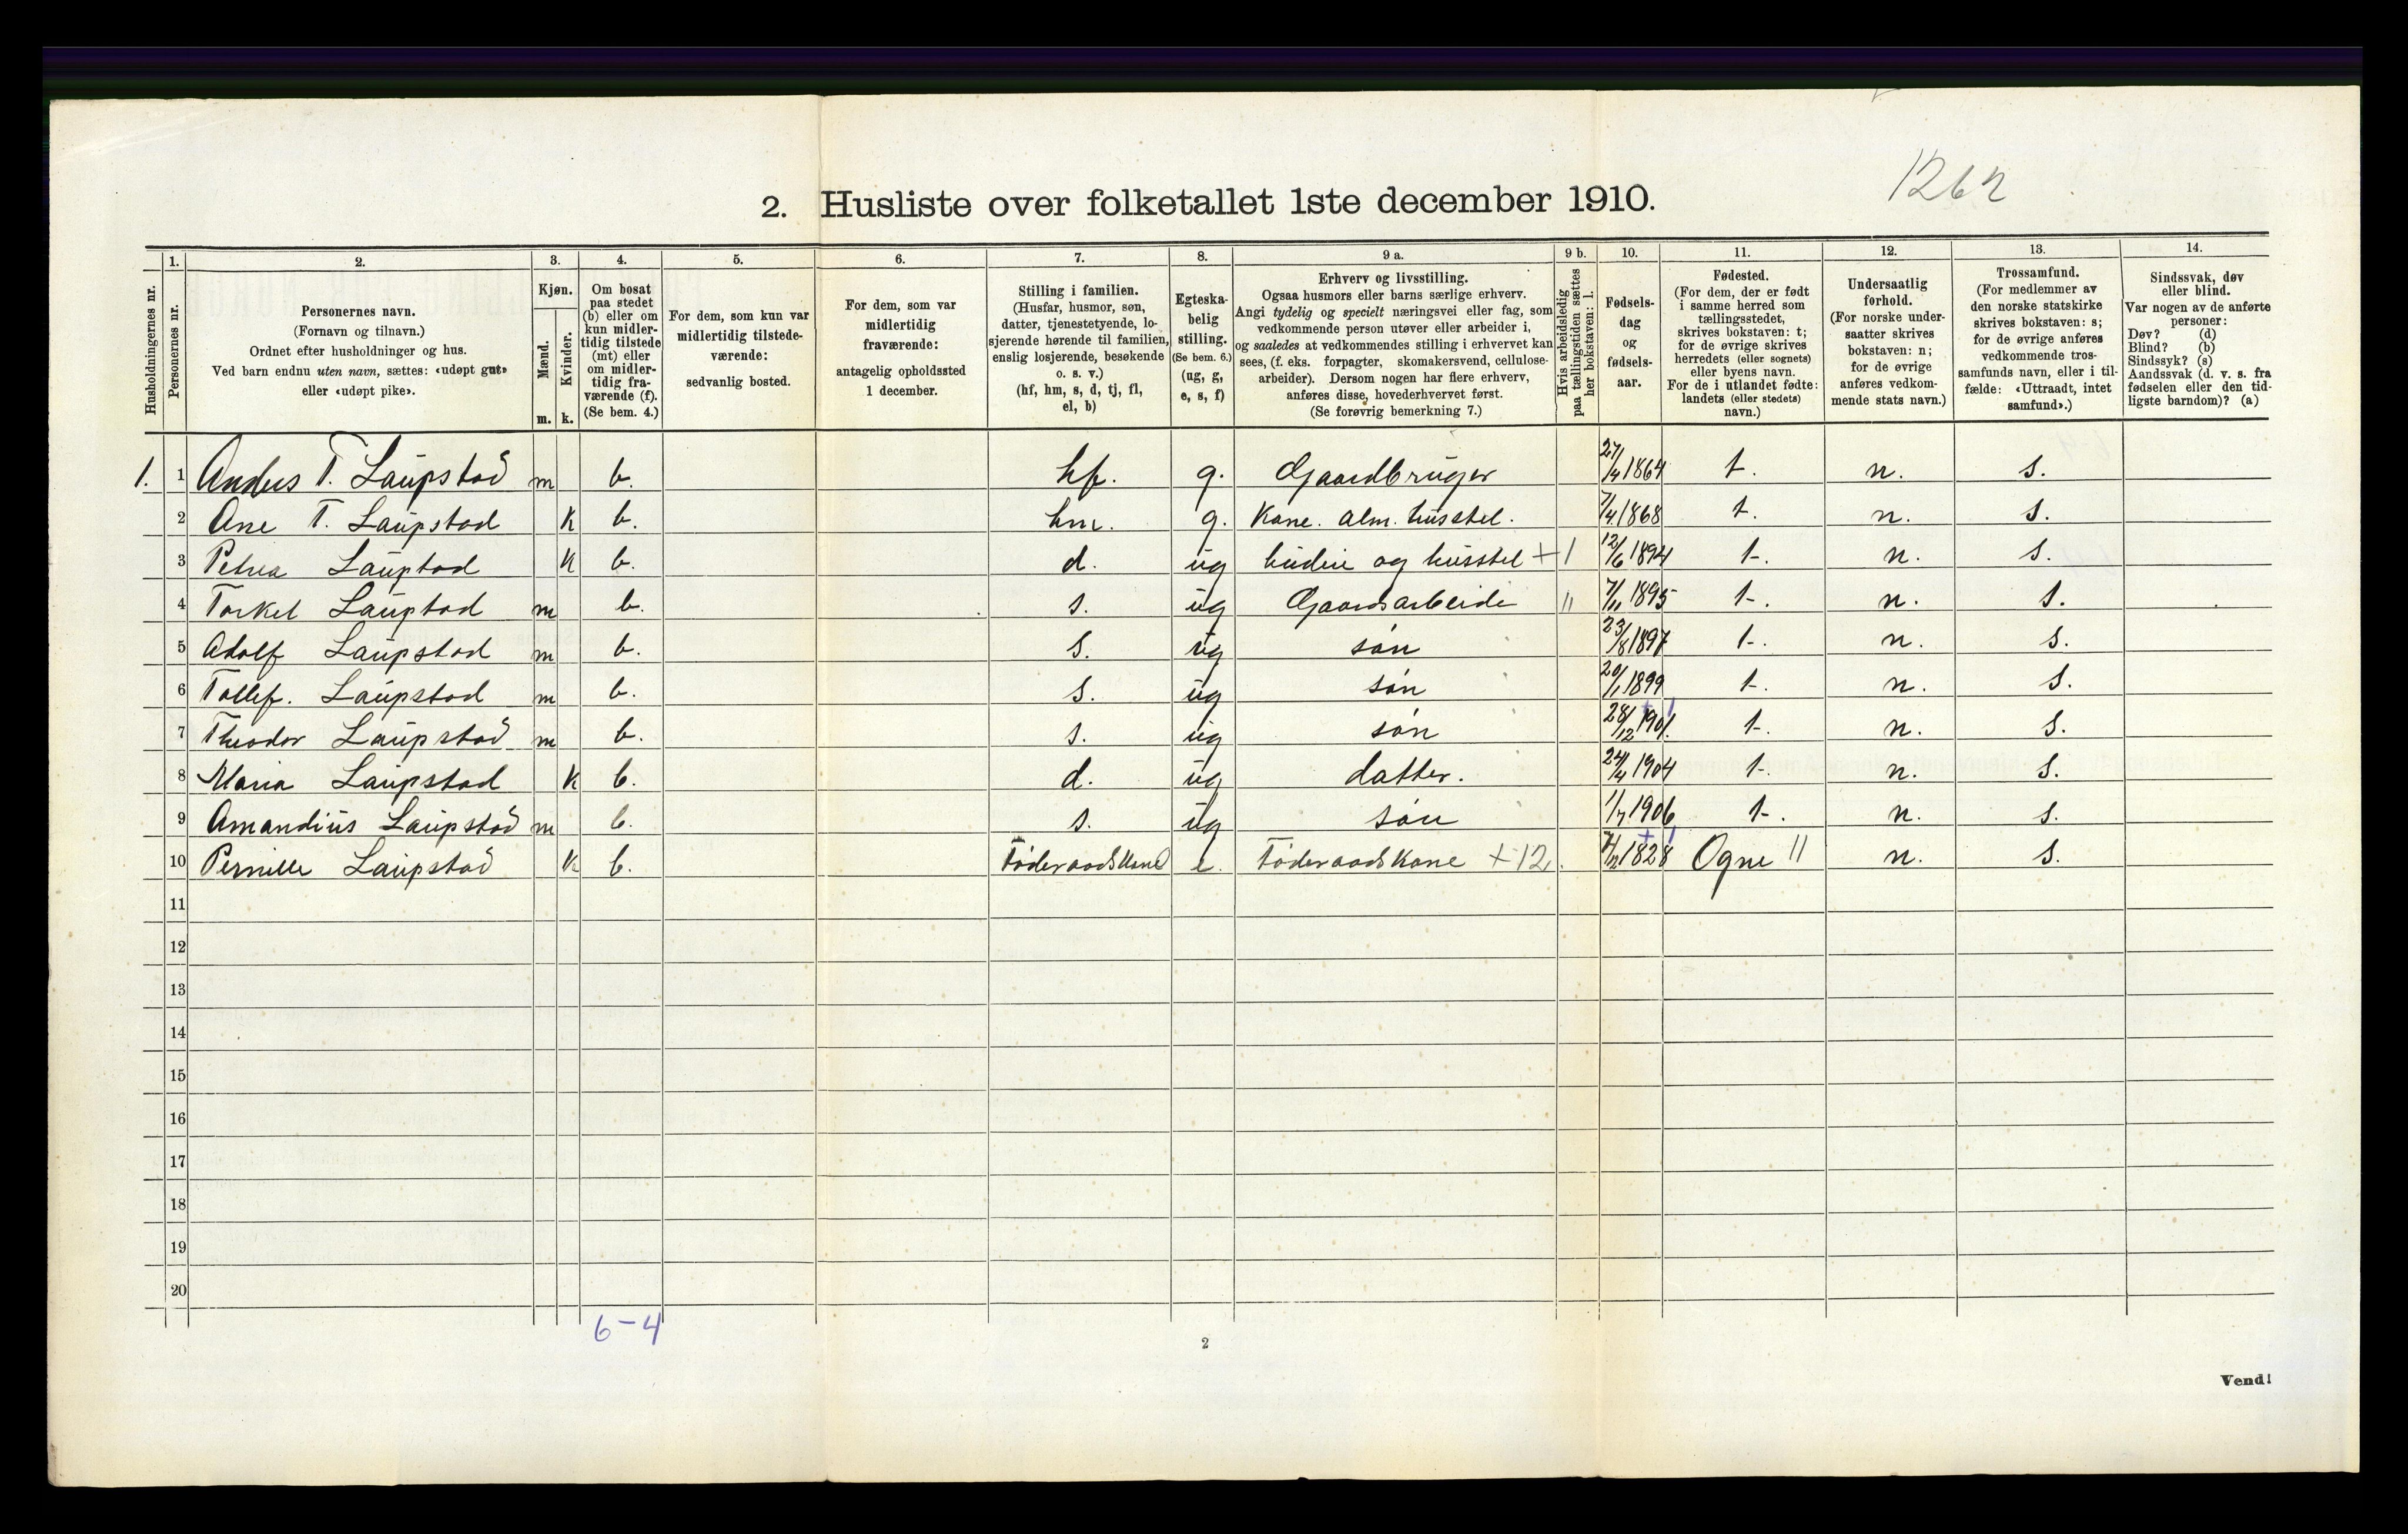 1262
2. Husliste over folketallet 1ste december 1910.
Husholdningernes nr.
1. Personernes nr.
2. Personernes navn.
(Fornavn og tilnavn.)
Ordnet efter husholdninger og hus.
Ved barn endnu uten navn, sættes: «udøpt gut»
eller «udøpt pike».
3. Kjøn.
Mænd. m.
Kvinder. k.
4. Om bosat
paa stedet
(b) eller om
kun midler-
tidig tilstede
(mt) eller
om midler-
tidig fra-
værende (f).
(Se bem. 4.)
5. For dem, som kun var
midlertidig tilstede-
værende:
sedvanlig bosted.
6. For dem, som var
midlertidig
fraværende:
antagelig opholdssted
1 december.
7. Stilling i familien.
(Husfar, husmor, søn,
datter, tjenestetyende, lo-
sjerende hørende til familien,
enslig losjerende, besøkende
o. s. v.)
(hf, hm, s, d, tj, fl,
el, b)
8. Egteska-
belig
stilling.
(Se bem. 6.)
(ug, g,
e, s, f)
9 a. Erhverv og livsstilling.
Ogsaa husmors eller barns særlige erhverv.
Angi tydelig og specielt næringsvei eller fag, som
vedkommende person utøver eller arbeider i,
og saaledes at vedkommendes stilling i erhvervet kan
sees, (f. eks. forpagter, skomakersvend, cellulose-
arbeider). Dersom nogen har flere erhverv,
anføres disse, hovederhvervet først.
(Se forøvrig bemerkning 7.)
9 b. Hvis arbeidsledig
paa tællingstiden sættes
her bokstaven: l.
10. Fødsels-
dag
og
fødsels-
aar.
11. Fødested.
(For dem, der er født
i samme herred som
tællingsstedet,
skrives bokstaven: t;
for de øvrige skrives
herredets (eller sognets)
eller byens navn.
For de i utlandet fødte:
landets (eller stedets)
navn.)
12. Undersaatlig
forhold.
(For norske under-
saatter skrives
bokstaven: n;
for de øvrige
anføres vedkom-
mende stats navn.)
13. Trossamfund.
(For medlemmer av
den norske statskirke
skrives bokstaven: s;
for de øvrige anføres
vedkommende tros-
samfunds navn, eller i til-
fælde: «Uttraadt, intet
samfund».)
14. Sindssvak, døv
eller blind.
Var nogen av de anførte
personer:
Døv? (d)
Blind? (b)
Sindssyk? (s)
Aandssvak (d. v. s. fra
fødselen eller den tid-
ligste barndom)? (a)
1. 1 Anders T. Laupstad m b. hf. g. Gaardbruger 27/4 1864 t. n. s.
2 Ane T. Laupstad K b. hm. g. Kone. alm. husstel. 7/4 1868 t. n. s.
3 Petrea Lauptad K b. d. ug budeie og husstel + 1 12/6 1894 t. n. s.
4 Torkel Lauptad m b. s. ug Gaardsarbeide " 7/11 1895 t. n. s.
5 Adolf Laupstad m b. s. ug søn 23/8 1897 t. n. s.
6 Tollef. Laupstad m b. s. ug søn 20/1 1899 t. n. s.
7 Theodor Laupstad m b. s. ug søn 28/12 1901. t. n. s.
8 Maria Laupstad K b. d. ug datter. 24/4 1904 t. n. s.
9 Amandius Laupstad m b. s. ug søn 1/7 1906 t. n. s.
10 Pernille Laupstad K b. Føderaadskone e. Føderaadskone + 12. 1828 Ogne 11 n. s.
11
12
13
14
15
16
17
18
19
20
6-4
2
Vend!